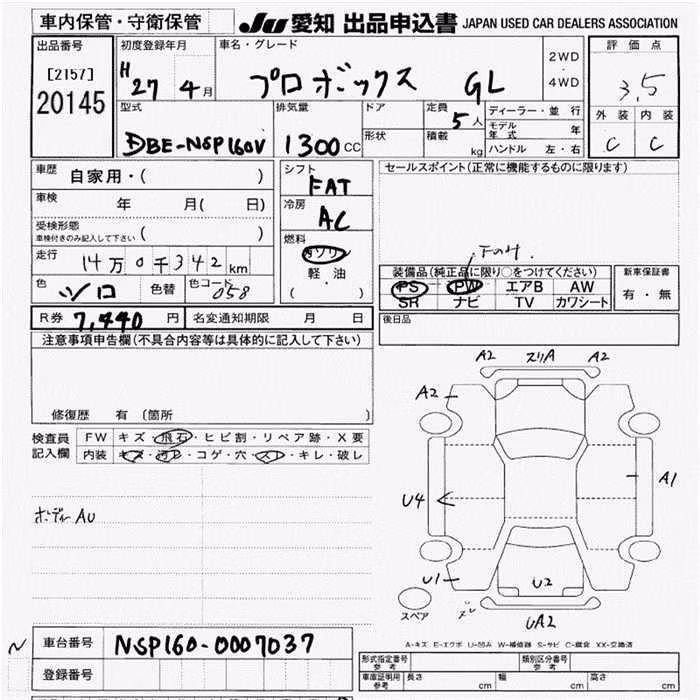 車内保管・守衛保管
JU 愛知 出品申込書 JAPAN USED CAR DEALERS ASSOCIATION
出品番号
[2157]
20145
初度登録年月
H 27 4月
車名・グレード
プロボックス GL
2WD
・
4WD
評価点
3.5
外装 内装
C C
型式
DBE-NSP160V
排気量
1300 CC
ドア
形状
定員
5人
積載
kg
ディーラー・並行
モデル年式 年
ハンドル 左・右
車歴
自家用・( )
車検
年 月( 日)
受検形態
車検付きのみ記入して下さい ( )
走行
14万0千342km
色
シロ
色替
色コード
058
シフト
FAT
冷房
AC
燃料
ガソリン
軽・油
( )
セールスポイント(正常に機能するものに限ります)
装備品(純正品に限り○をつけてください)
PS PW エアB AW
SR ナビ TV カワシート
新車保証書
有・無
R券 7,440 円
名変通知期限 月 日
後日品
注意事項申告欄(不具合内容等は具体的に記入して下さい)
修復歴 有 〔箇所 〕
検査員
記入欄
FW キズ・飛石・ヒビ割・リペア跡・X要
内装 キズ・汚レ・コゲ・穴・スレ・キレ・破レ
ボディーAU
A2 スリA A2
A2
A1
U4
U1
U2
UA2
スペア
A-キズ E-エクボ U-凹み W-補修跡 S-サビ C-腐食 XX-交換済
車台番号
NSP160-0007037
登録番号
型式指定番号
参考
類別区分番号
参考
車庫証明用
参考
長さ cm
幅 cm
高さ cm